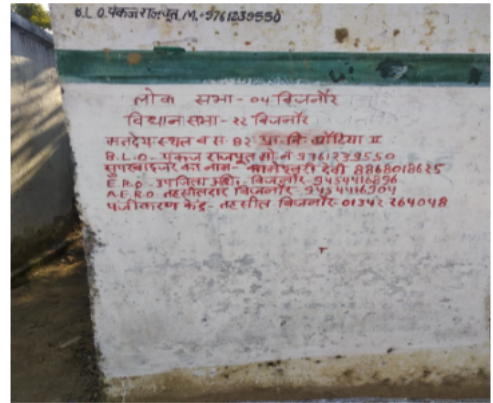 B.L.O. पंकज राजपूत M.-9761239550
लोक सभा-04 बिजनौर
विधान सभा-22 बिजनौर
मतदेय स्थल व स. 82 प्रा. वि. II
B.L.O- पंकज राजपूत मो नं 9761239550
सुपरवाइजर का नाम- देवी 8868018625
E.R.O- उप जिला अधि. बिजनौर-9454416896
A.E.R.O तहसीलदार बिजनौर-9454416904
पंजीकरण केंद्र- तहसील बिजनौर-01342 264048